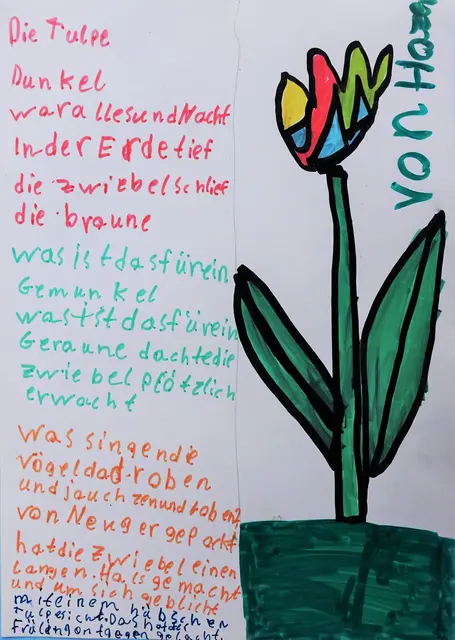 Die Tulpe
Dunkel
war allesundNacht
InderErdetief
die zwiebelschlief
die braune
was istdasfürein
Gemunkel
wastst dasfürein
Geraune dachtedie
zwiebel plötzlich
erwacht
was singendie
vögeldad-roben
undjauchzenundtoben?
von Neugergepackt
hatdie zwiebel einen
langen. Hals gemacht
und um sich geblickt
miteinem hübschen
Tulpesicht. Das hatdch
Frülingentgegen gelacht.
von